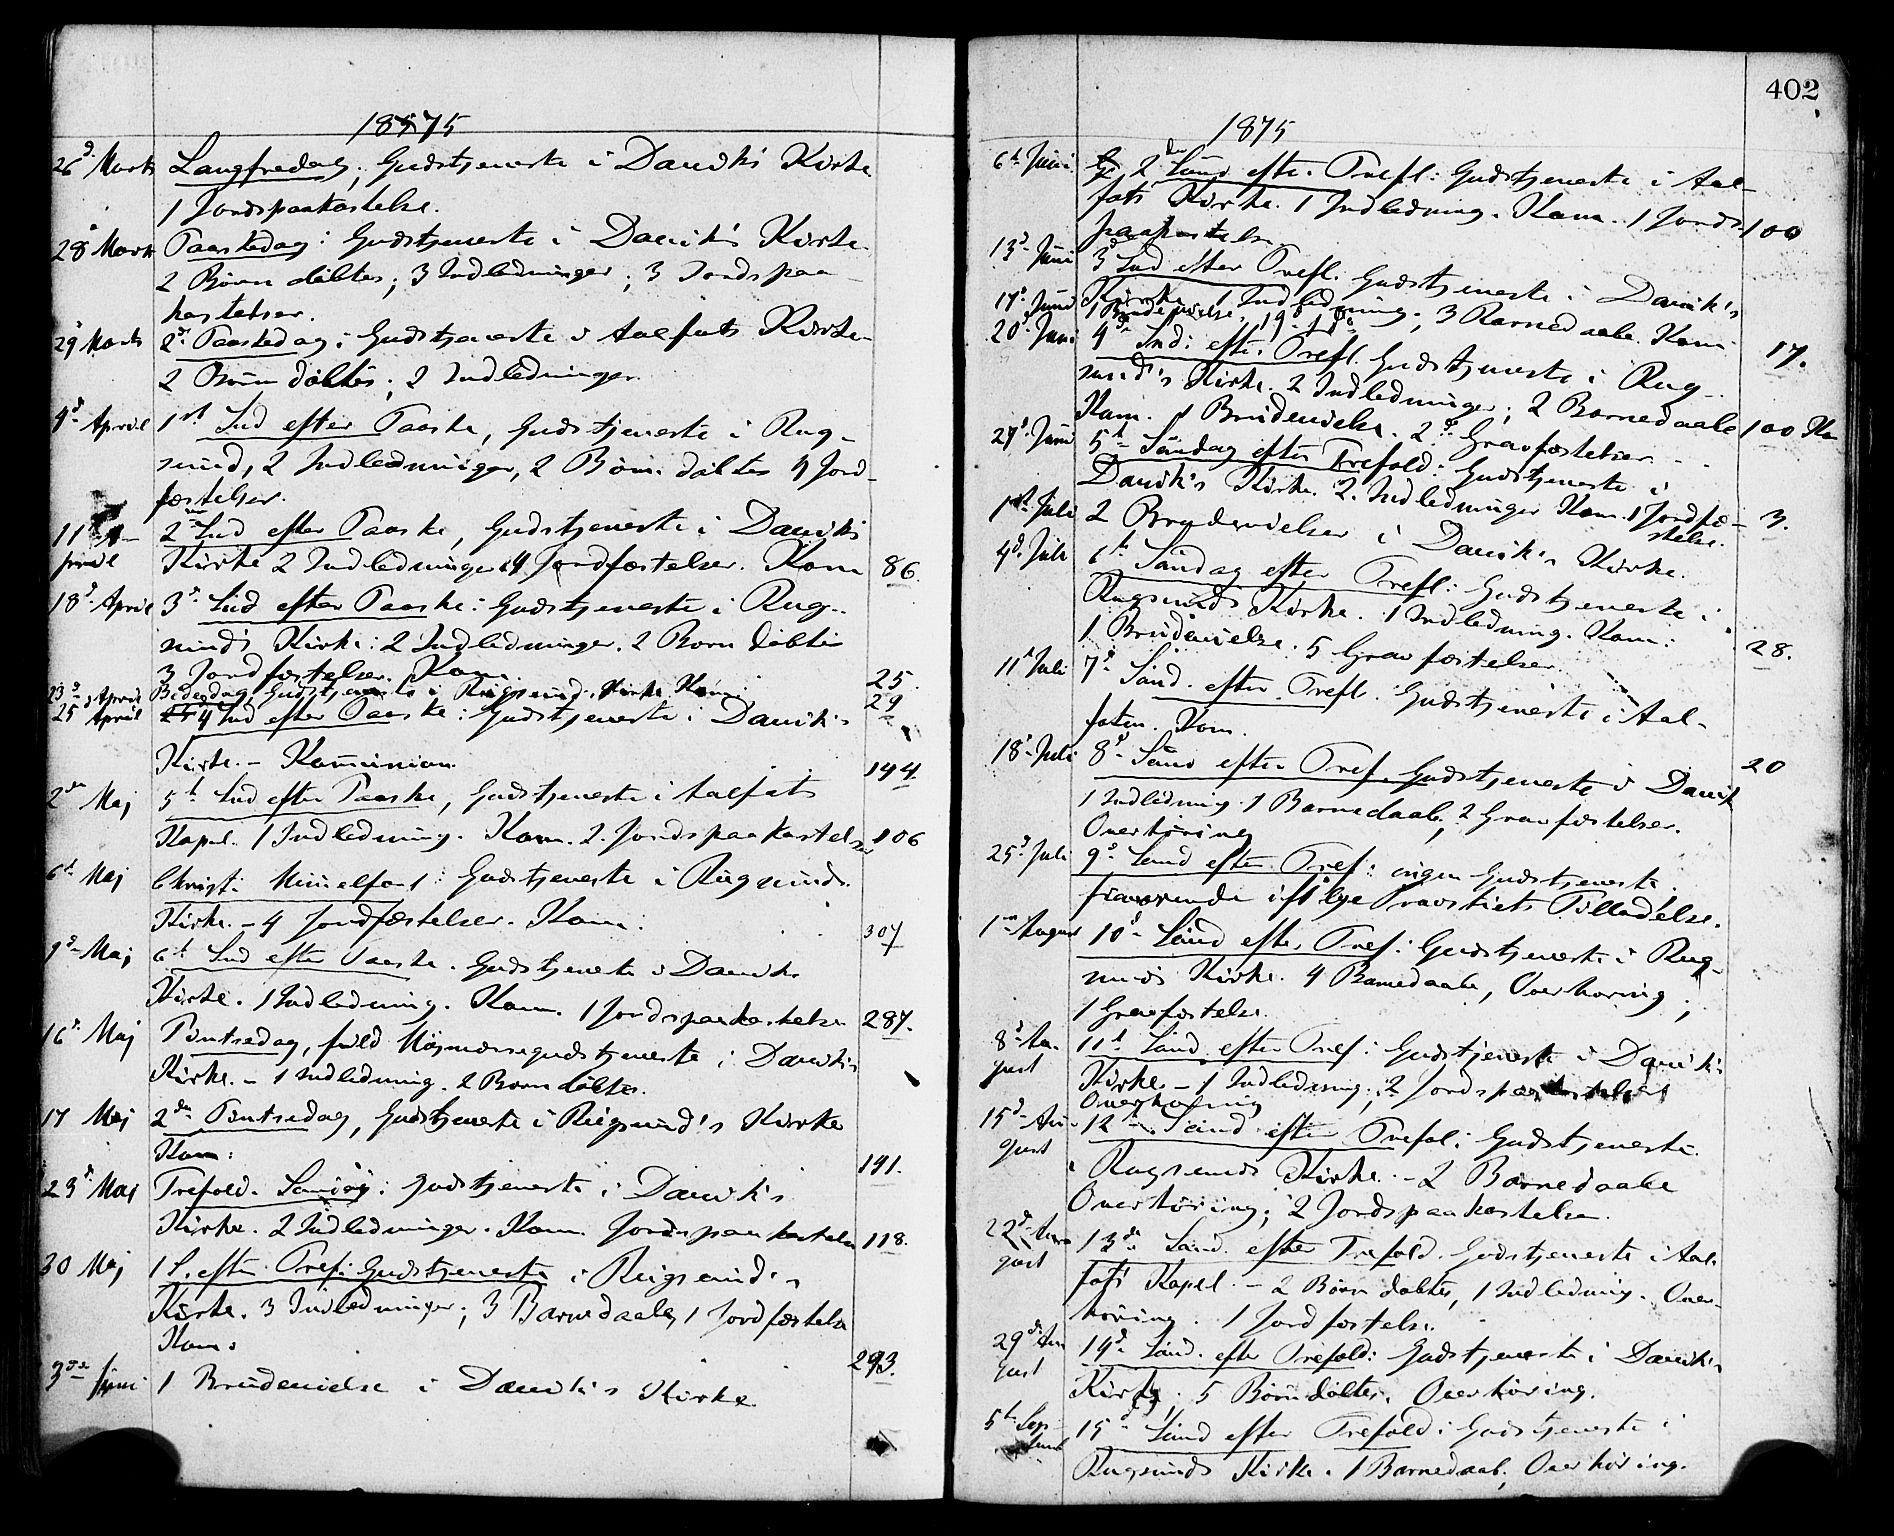 1875
26d. Marts Langfredag; Gudstjeneste i Daviks Kirke
1 Jordspaakastelse.
28d Marts Paaskedag: Gudstjeneste i Davik's Kirke.
2 Børn døbtes; 3 Indledninger; 3 Jordspaa-
kastelser.
29 Marts 2den Paaskedag: Gudstjeneste i Aalfots Kirke-
2 Børn døbtes; 2 Indledninger.
4d. April 1st Snd efter Paaske, Gudstjeneste i Rug-
sund, 2 Indledninger, 2 Børn døbtes 4 Jord-
fæstelser.
11t A-
pril
2den Snd efter Paaske, Gudstjeneste i Daviks
Kirke 2 Indledninger 4 Jordfæstelser. Kom 86.
18d. April 3d. Snd efter Paaske: Gudstjeneste i Rug-
sund's Kirke: 2 Indledninger. 2 Børn døbtes
3 Jordfæstelser. Kom. 25.
23d April Bededag Gudstjeneste i Rugsund. Kirke Kom: 29
25 April 4 Snd efter Paaske: Gudstjeneste i Davik's
Kirke. - Kommunion. 144
2den Maj 5t Snd efter Paaske, Gudstjeneste i Aalfots
Kapel. 1 Indledning. Kom. 2. Jordspaakastelser 106
6t Maj Christi Himmelfart: Gudstjeneste i Rugsunds
Kirke. - 4 Jordfæstelser. Kom: 307
9d Maj 6t Snd efter Paaske. Gudstjeneste i Daviks
Kirke. 1 Indledning. Kom. 1 Jordspaakastelse 287.
16d. Maj Pintsedag, fuld Højmessegudstjeneste i Daviks
Kirke. - 1 Indledning. 2 Børn døbtes.
17 Maj 2den Pintsedag, Gudstjeneste i Rugsund's Kirke
Kom: 191.
23d Maj Trefold. Søndag: Gudstjeneste i Davik's
Kirke. 2 Indledninger. Kom. Jordspaakastelse 118.
30 Maj 1 S. efter Tref: Gudstjeneste i Rugsund's
Kirke. 3 Indledninger; 3 Barnedaab, 1 Jordfæstelse
Kom: 293.
3die Juni 1 Brudevielse i Davik's Kirke
402
1875
6t Juni 2den Sønd efter Trefl: Gudstjeneste i Aal-
fots Kirke. 1 Indledning. Kom. 1 Jords- 100
paakastelse
13d. Juni 3d Snd efter Trefl. Gudstjeneste i Davik's
Kirke. 1 Indledning; 3 Barnedaab. Kom 17.
17d. Juni 1 Brudevielse,
20d. Juni 4d Snd: efter Trefl. Gudstjeneste i Rug-
sund's Kirke. 2 Indledninger; 2 Barnedaab
Kom. 1 Brudevielse. 2 Gravfæstelser. 100
27d. Juni 5t Søndag efter Trefold: Gudstjeneste i
Davik's Kirke. 2. Indledninger Kom. 1 Jordfæ- 3.
stelse.
1st Juli 2 Brudevielser i Davik's Kirke.
4d. Juli 6t Søndag efter Trefl: Gudstjeneste i
Rugsunds Kirke. 1 Indledning. Kom:
1 Brudevielse. 5 Gravfæstelser. 28.
11t Juli 7d Sønd. efter Trefl. Gudstjeneste i Aal-
foten. Kom. 20
18d. Juli 8d Sønd efter Tref. Gudstjeneste i Davik
1 Indledning. 1 Barnedaab, 2 Gravfæstelser.
Overhøring
25d. Juli 9d Sønd efter Tref: ingen Gudstjeneste.
fraværende ifølge Provstiets Tilladelse.
1ste August 10d Sønd efter Tref: Gudstjeneste i Rug-
sunds Kirke. 4 Barnedaab, Overhøring;
1 Gravfæstelse.
8d Au-
gust
11t Sønd efter Tref: Gudstjeneste i Davik's
Kirke. - 1 Indledning; 2 Jordspaakastelser
Overhøring
15d. Au-
gust
12t Sønd efter Trefol: Gudstjeneste
i Rugsunds Kirke. - 2 Barnedaab
Overhøring; 2 Jordspaakastelse.
22d Au-
gust
13de Sønd. efter Trefold. Gudstjeneste i Aal-
fots Kapel. - 2 Børn døbtes, 1 Indledning. Over-
høring. 1 Jordfæstelse.
29d Au-
gust
14d Sønd. efter Trefold: Gudstjeneste i Davik's
Kirke; 5 Børn døbtes. Overhøring.
5t Sep-
temb
15d Sønd efter Trefold: Gudstjeneste i
Rugsunds Kirke. 1 Barnedaab; Overhøring.